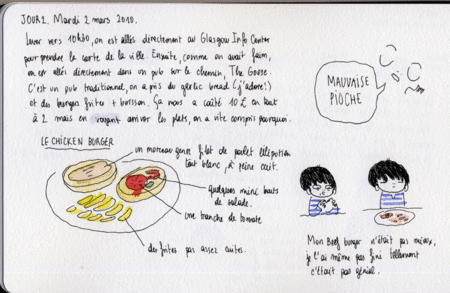 JOUR 2. Mardi 2 mars 2010.
Lever vers 10h30, on est allés directement au Glasgow Info Center
pour prendre la carte de la ville. Ensuite, comme on avait faim,
on est allés directement dans un pub sur le chemin, The Goose.
C'est un pub traditionnel, on a pris du garlic bread (j'adore!)
et des burgers frites + boisson. Ça nous a coûté 10 £ en tout
à 2 mais en voyant arriver les plats, on a vite compris pourquoi.
MAUVAISE
PIOCHE
LE CHICKEN BURGER
un morceau genre filet de poulet lilliputien
tout blanc, à peine cuit.
quelques mini bouts
de salade.
une tranche de tomate
des frites pas assez cuites.
Mon Beef burger n'était pas mieux,
je l'ai même pas fini tellement
c'était pas génial.